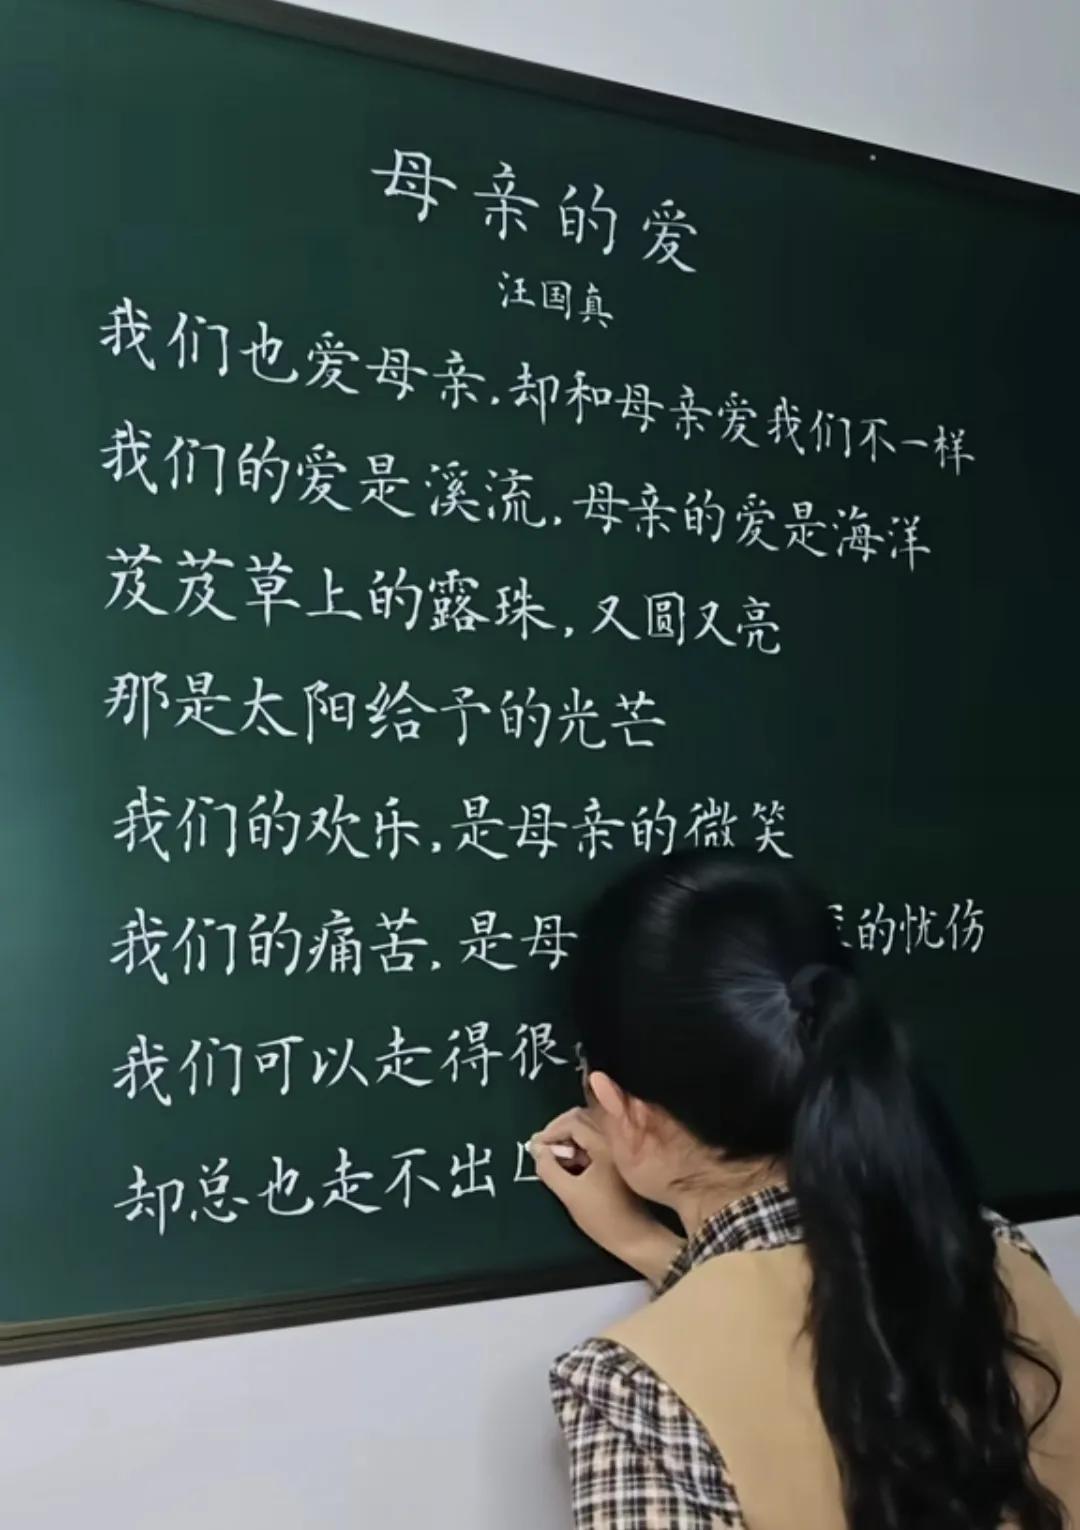 母亲的爱
汪国真
我们也爱母亲,却和母亲爱我们不一样
我们的爱是溪流,母亲的爱是海洋
芨芨草上的露珠,又圆又亮
那是太阳给予的光芒
我们的欢乐,是母亲的微笑
我们的痛苦,是母 的忧伤
我们可以走得很
却总也走不出